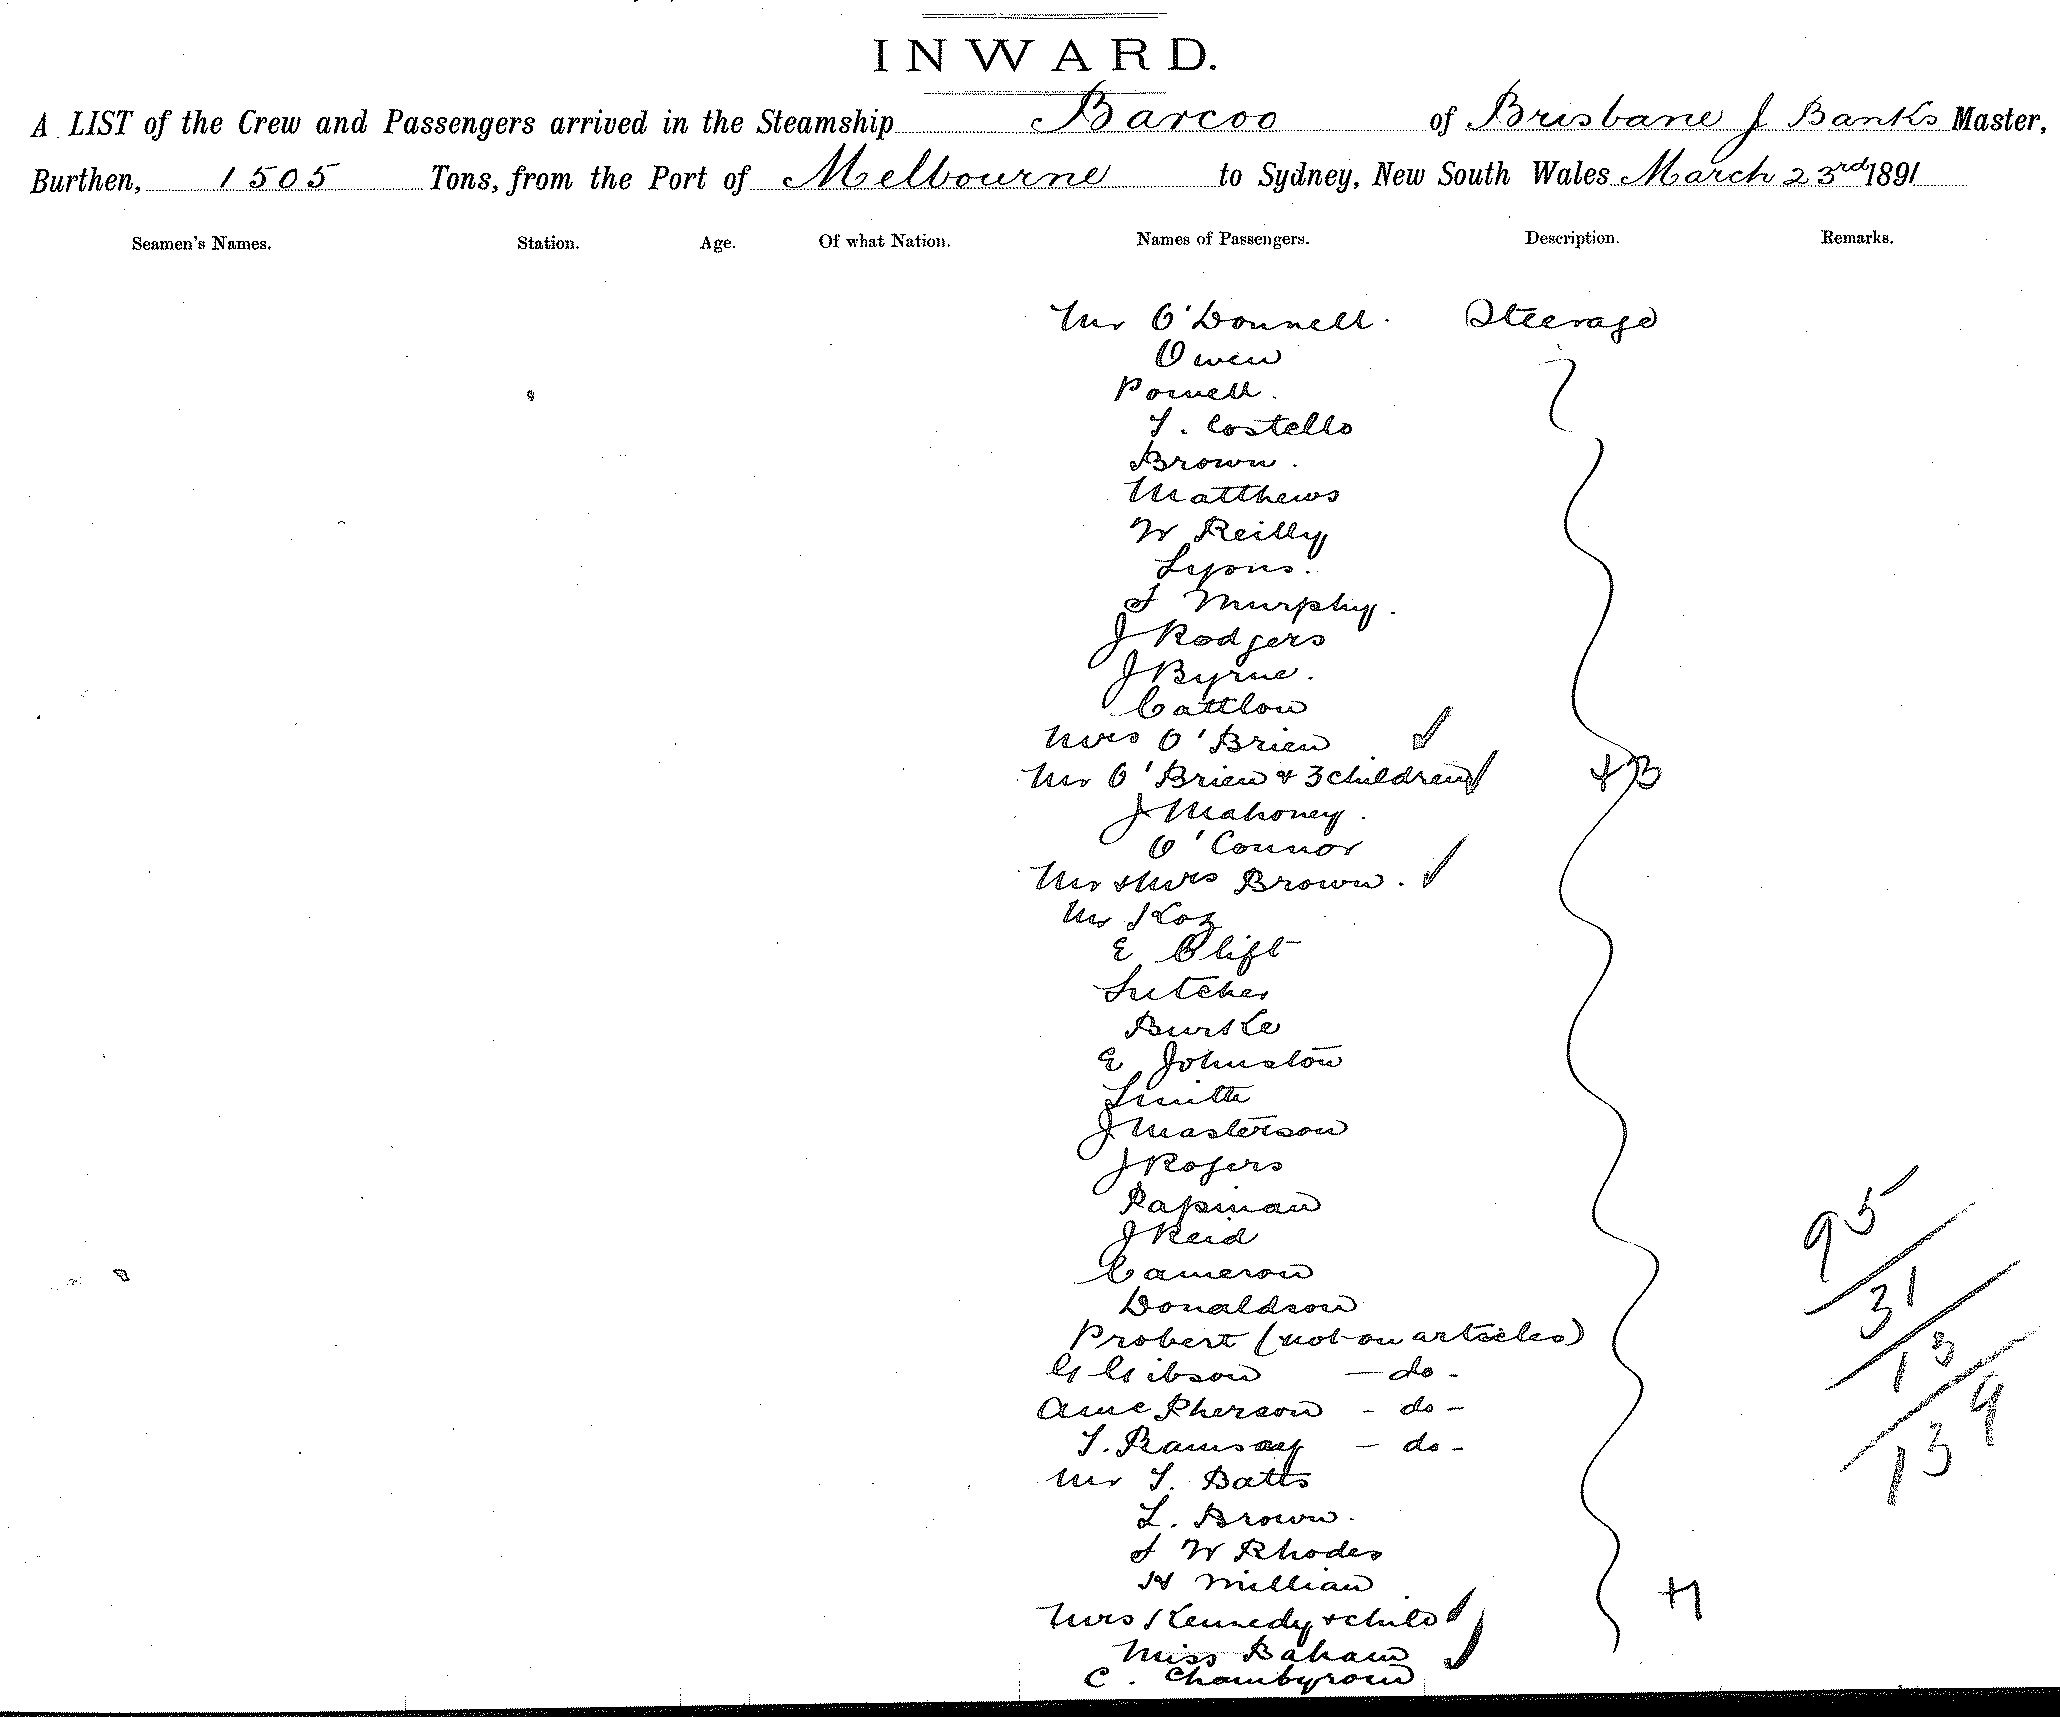 INWARD.
A LIST of the Crew and Passengers arrived in the Steamship Barcoo of Brisbane J Banks Master,
Burthen, 1505 Tons, from the Port of Melbourne to Sydney, New South Wales March 23rd 1891
Seamen's Names. Station. Age. Of what Nation. Names of Passengers. Description. Remarks.
Mr O'Donnell. Steerage
Owen
Powell.
T. Costello
Brown.
Matthews
W Reilly
Lyons.
Murphy.
J Rodgers
J Byrne.
Cattlon
Mrs O'Brien
Mr O'Brien & 3 children +3
J Mahoney.
O'Connor
Mr & Mrs Brown.
Mr Koz
E Clift
Sutcher
Burke
E Johnston
Smith
J Masterson
J Rogers
Papman
J Reid
Cameron
Donaldson
Probert (not on articles)
G Gibson — do -
A McPherson - do -
T. Ramsay - do -
Mr T. Batts
L. Brown.
W Rhodes
H Millian
Mrs Kennedy & child +1
Miss Baham
C.
95
31
13
139